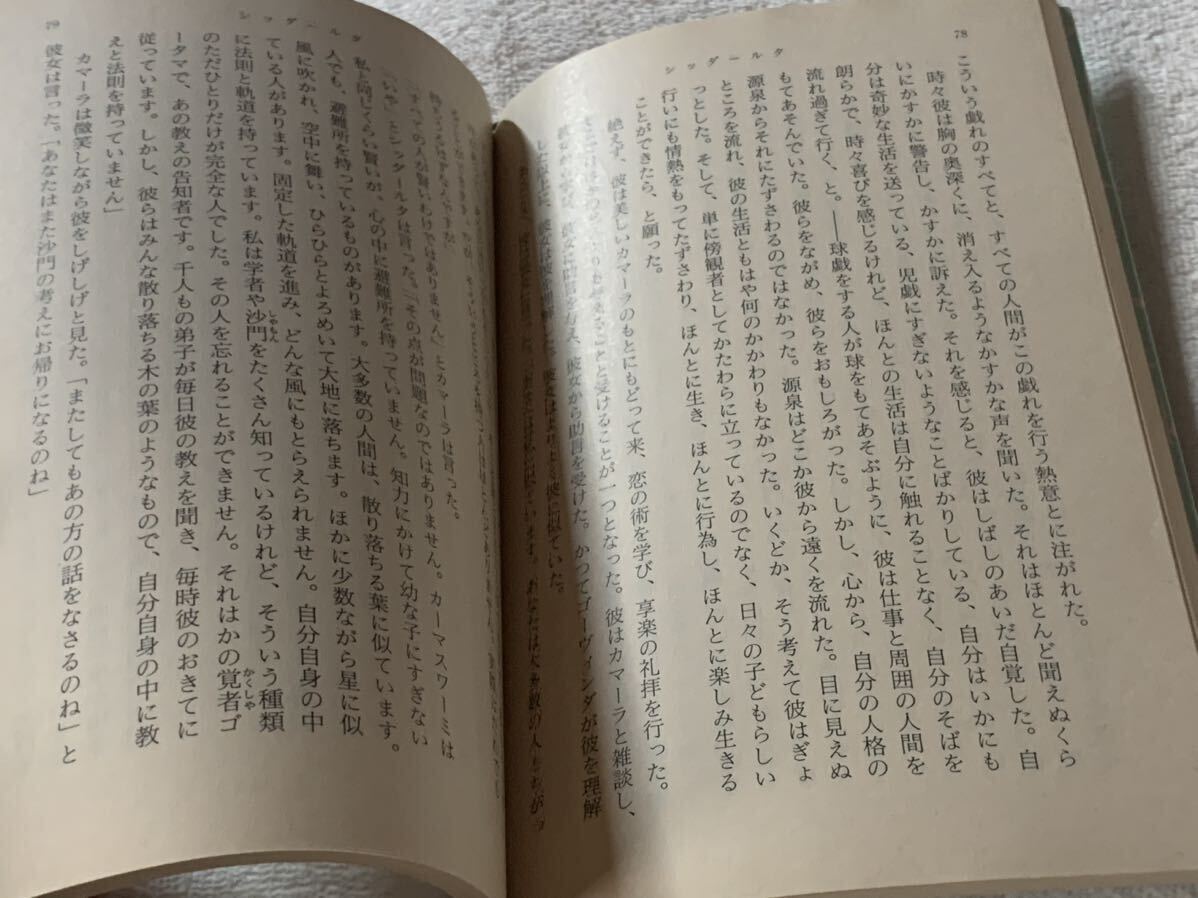 78
シッダールタ
こういう戯れのすべてと、すべての人間がこの戯れを行う熱意とに注がれた。
時々彼は胸の奥深くに、消え入るようなかすかな声を聞いた。それはほとんど聞えぬくら
いにかすかに警告し、かすかに訴えた。それを感じると、彼はしばしのあいだ自覚した。自
分は奇妙な生活を送っている、児戯にすぎないようなことばかりしている、自分はいかにも
朗らかで、時々喜びを感じるけれど、ほんとの生活は自分に触れることなく、自分のそばを
流れ過ぎて行く、と。――球戯をする人が球をもてあそぶように、彼は仕事と周囲の人間を
もてあそんでいた。彼らをながめ、彼らをおもしろがった。しかし、心から、自分の人格の
源泉からそれにたずさわるのではなかった。源泉はどこか彼から遠くを流れた。目に見えぬ
ところを流れ、彼の生活ともはや何のかかわりもなかった。いくどか、そう考えて彼はぎょ
っとした。そして、単に傍観者としてかたわらに立っているのでなく、日々の子どもらしい
行いにも情熱をもってたずさわり、ほんとに生き、ほんとに行為し、ほんとに楽しみ生きる
ことができたら、と願った。
絶えず、彼は美しいカマーラのもとにもどって来、恋の術を学び、享楽の礼拝を行った。
ことと受けることが一つとなった。彼はカマーラと雑談し、
彼女から助言を受けた。かつてゴーヴィンダが彼を理解
した以上に、彼女は彼を理解した。彼女はよりよく彼に似ていた。
あなたは大多数の人とちがっ
79
シッダールタ
「すべての人が賢いわけではありません」とカマーラは言った。
「いや」とシッダールタは言った。「その点が問題なのではありません。カーマスワーミは
私と同じくらい賢いが、心の中に避難所を持っていません。知力にかけて幼な子にすぎない
人でも、避難所を持っているものがあります。大多数の人間は、散り落ちる葉に似ています。
風に吹かれ、空中に舞い、ひらひらとよろめいて大地に落ちます。ほかに少数ながら星に似
ている人があります。固定した軌道を進み、どんな風にもとらえられません。自分自身の中
に法則と軌道を持っています。私は学者や沙門をたくさん知っているけれど、そういう種類
のただひとりだけが完全な人でした。その人を忘れることができません。それはかの覚者ゴ
ータマで、あの教えの告知者です。千人もの弟子が毎日彼の教えを聞き、毎時彼のおきてに
従っています。しかし、彼らはみんな散り落ちる木の葉のようなもので、自分自身の中に教
えと法則を持っていません」
カマーラは微笑しながら彼をしげしげと見た。「またしてもあの方の話をなさるのね」と
彼女は言った。「あなたはまた沙門の考えにお帰りになるのね」